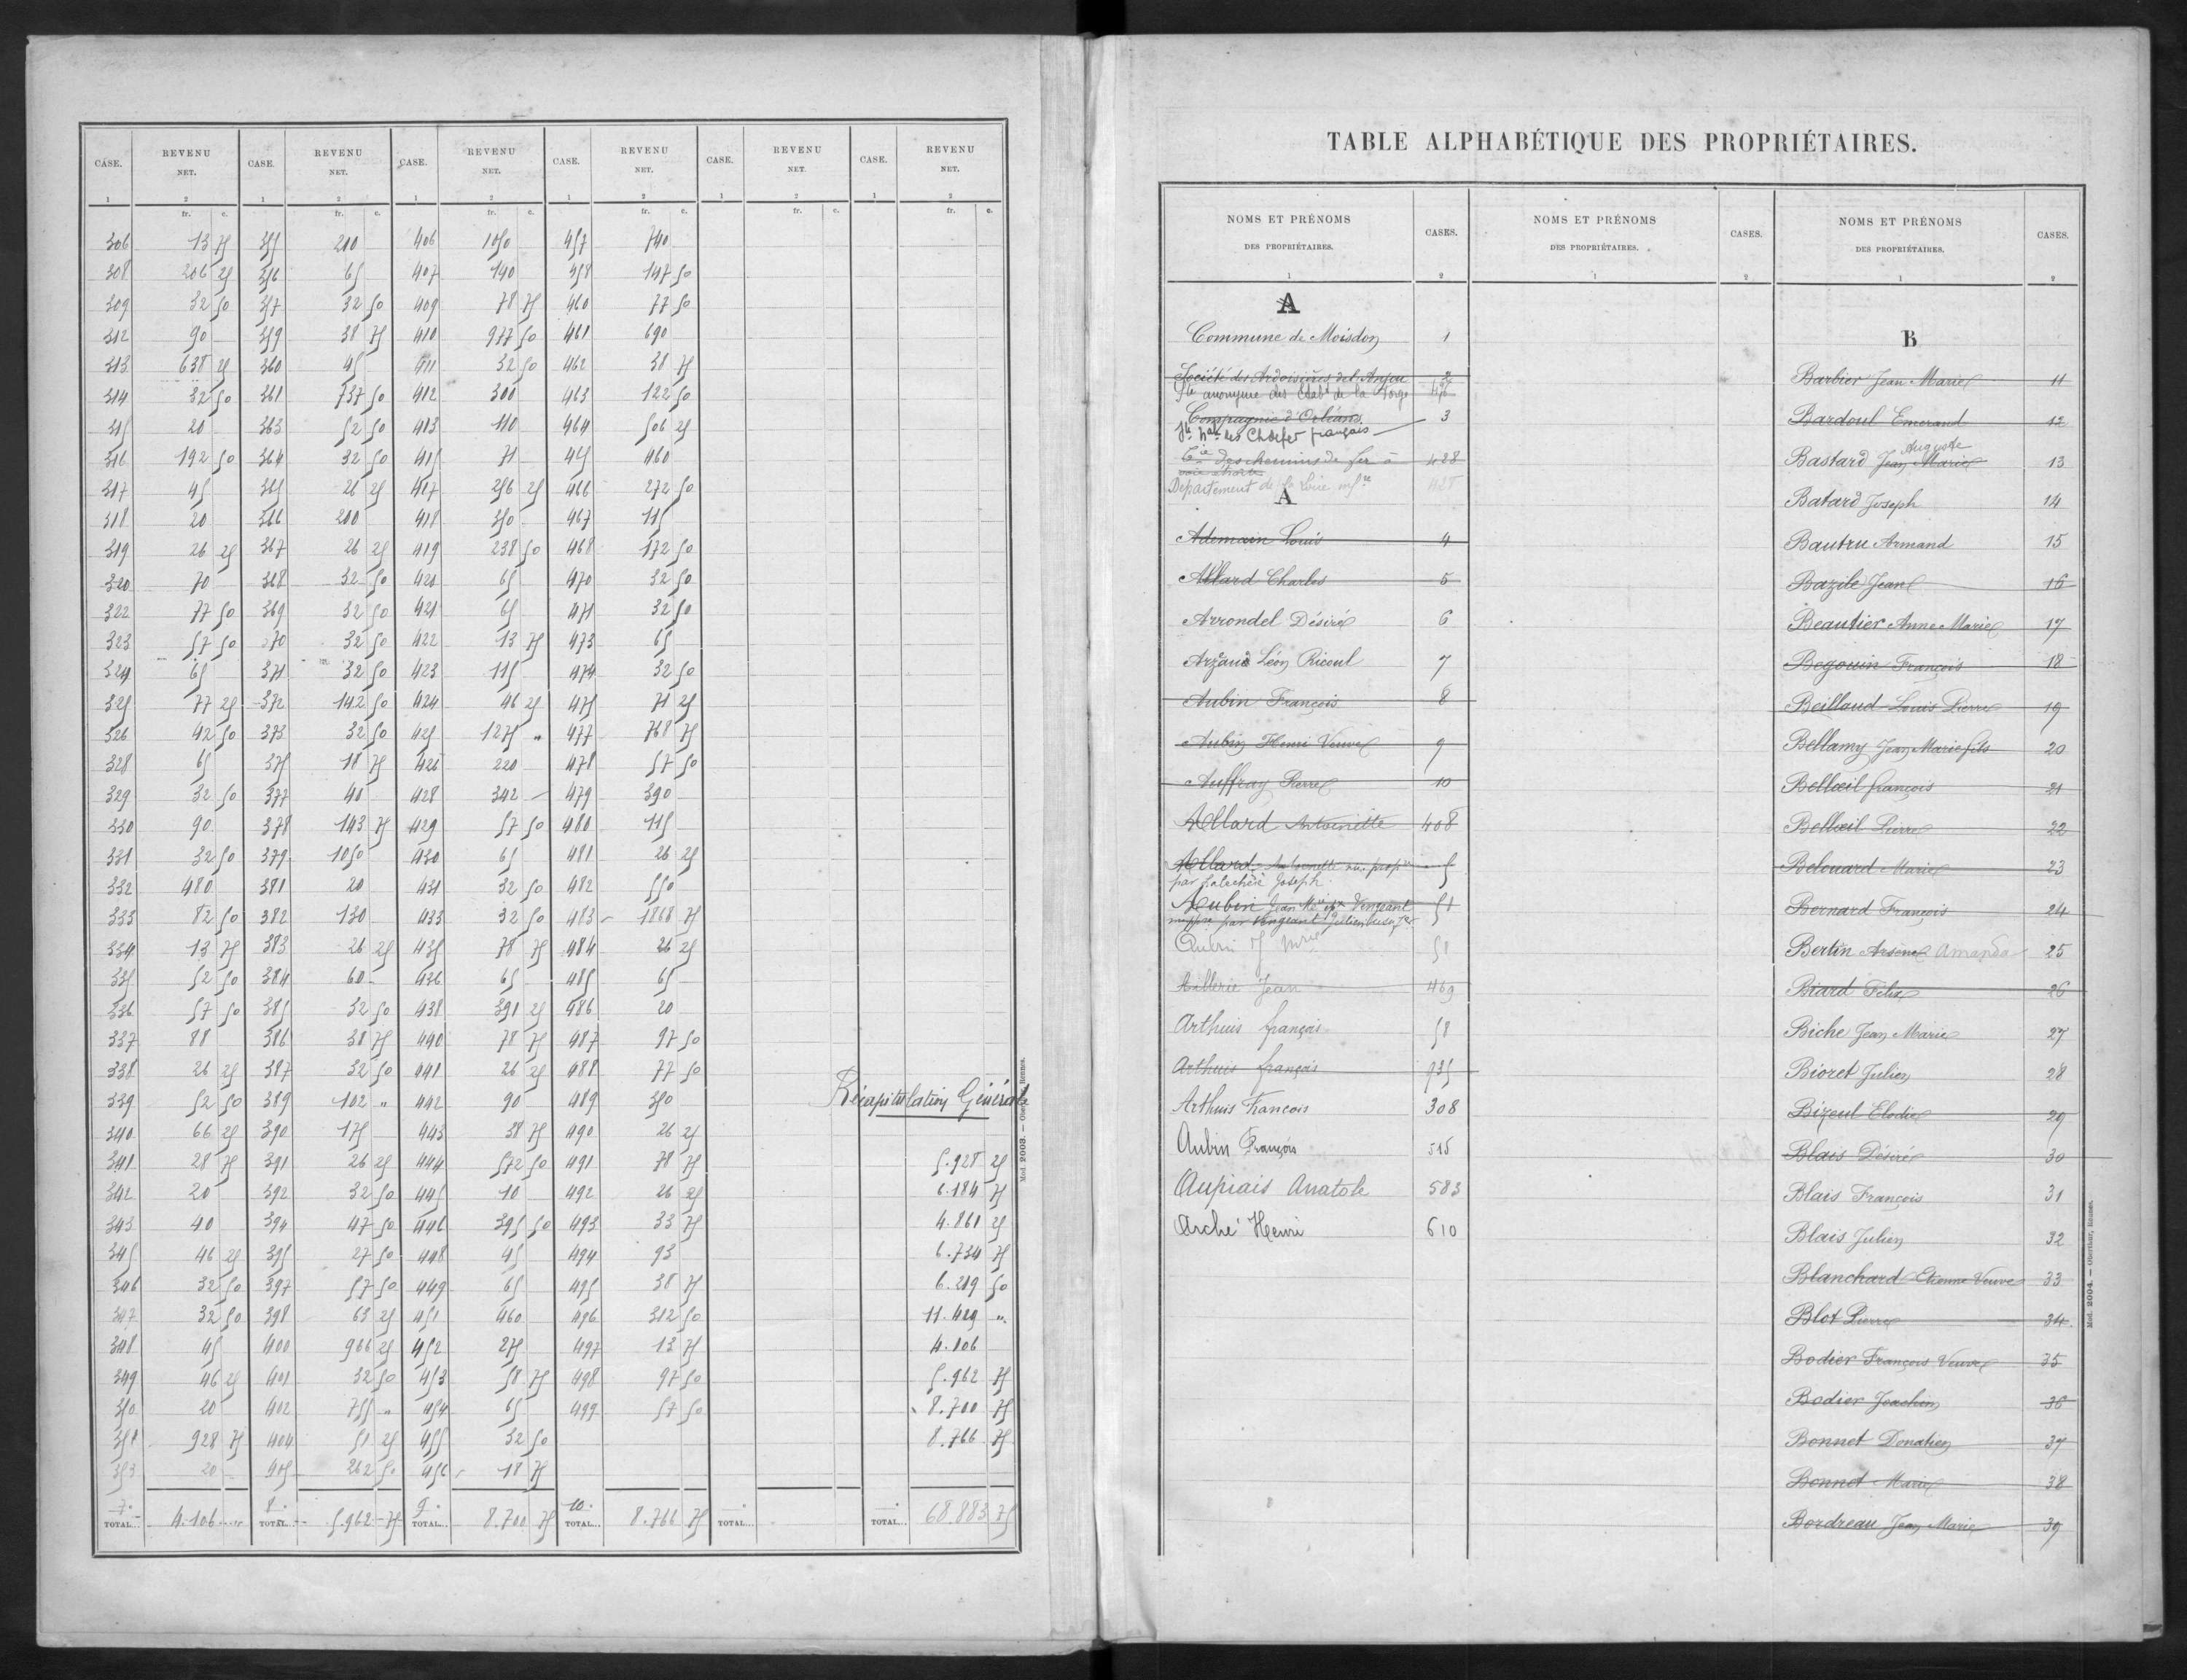 CASE. REVENU NET. CASE. REVENU NET. CASE. REVENU NET. CASE. REVENU NET. CASE. REVENU NET. CASE. REVENU NET.
1 2 1 2 1 2 1 2 1 2 1 2
fr. c. fr. c. fr. c. fr. c. fr. c. fr. c.
306 13 75 355 210 406 1050 457 740
308 206 25 356 65 407 140 458 147 50
309 32 50 357 32 50 409 78 75 460 77 50
312 90 359 38 75 410 977 50 461 690
313 638 25 360 45 411 32 50 462 38 75
314 32 50 361 737 50 412 300 463 122 50
315 20 363 52 50 413 110 464 506 25
316 192 50 364 32 50 415 71 465 460
317 45 365 26 25 417 256 25 466 272 50
318 20 366 200 418 350 467 115
319 26 25 367 26 25 419 238 50 468 172 50
320 70 368 32 50 420 65 470 32 50
322 77 50 369 32 50 421 65 471 32 50
323 57 50 370 32 50 422 13 75 473 65
324 65 371 32 50 423 115 474 32 50
325 77 25 372 142 50 424 46 25 475 71 25
326 42 50 373 32 50 425 1275 " 477 768 75
328 65 375 18 75 426 220 478 57 50
329 32 50 377 40 428 342 479 390
330 90 378 143 75 429 57 50 480 115
331 32 50 379 1050 430 65 481 26 25
332 480 381 20 431 32 50 482 550
333 82 50 382 130 433 32 50 483 1868 75
334 13 75 383 26 25 435 78 75 484 26 25
335 52 50 384 60 436 65 485 65
336 57 50 385 32 50 438 391 25 486 20
337 88 386 38 75 440 78 75 487 97 50
338 26 25 387 32 50 441 26 25 488 77 50
339 52 50 389 102 " 442 90 489 350 Récapitulation Générale
340 66 25 390 175 443 38 75 490 26 25
341 28 75 391 26 25 444 572 50 491 78 75 5.928 25
342 20 392 32 50 445 10 492 26 25 6.184 75
343 40 394 47 50 446 395 50 493 33 75 4.861 25
345 46 25 395 27 50 448 45 494 93 6.734 75
346 32 50 397 57 50 449 65 495 38 75 6.219 50
347 32 50 398 63 25 451 460 496 312 50 11.429 "
348 45 400 966 25 452 275 497 13 75 4.106
349 46 25 401 32 50 453 58 75 498 97 50 5.962 75
350 20 402 755 " 454 65 499 57 50 8.700 75
351 928 75 404 51 25 455 32 50 8.766 75
353 20 405 262 50 456 18 75
7. 8. 9. 10.
TOTAL... 4.106 " TOTAL... 5.962 75 TOTAL... 8.700 75 TOTAL... 8.766 75 TOTAL... TOTAL... 68.883 75
Mod. 2003. — Oberthur, Rennes.
TABLE ALPHABÉTIQUE DES PROPRIÉTAIRES.
NOMS ET PRÉNOMS DES PROPRIÉTAIRES. CASES. NOMS ET PRÉNOMS DES PROPRIÉTAIRES. CASES. NOMS ET PRÉNOMS DES PROPRIÉTAIRES. CASES.
1 2 1 2 1 2
A
Commune de Moisdon 1
Société des Ardoisières de l'Anjou 2
Sté anonyme des Etabts de la Forge
Compagnie d'Orléans 3
Sté Nale des Ch de fer français
Cie des chemins de fer à 428
voie étroite
Département de la Loire infre 428
A
Ademain Louis 4
Allard Charles 5
Arrondel Désiré 6
Arzaud Léon Ricoul 7
Aubin François 8
Aubin Henri Veuve 9
Auffray Pierre 10
Allard Antoinette 408
Allard Antoinette nu-propre 5
par Joseph
Aubin Jean Mie 51
Aubin J Marie 51
Aillerie Jean 469
Arthuis françois 58
Arthuis françois 935
Arthuis Francois 308
Aubin François 515
Aupiais Anatole 583
Arché Henri 610
B
Barbier Jean Marie 11
Bardoul Emerand 12
Auguste
Bastard Jean Marie 13
Batard Joseph 14
Bautru Armand 15
Bazile Jean 16
Beautier Anne Marie 17
Begouin François 18
Beillaud Louis Pierre 19
Bellamy Jean Marie fils 20
Belloeil françois 21
Belloeil Pierre 22
Belouard Marie 23
Bernard François 24
Bertin Arsène Amanda 25
Biard Félix 26
Biche Jean Marie 27
Bioret Julien 28
Bizeul Elodie 29
Blais Désiré 30
Blais François 31
Blais Julien 32
Blanchard Etienne Veuve 33
Blot Pierre 34
Bodier François Veuve 35
Bodier Joachim 36
Bonnet Donatien 37
Bonnet Marie 38
Bordreau Jean Marie 39
Mod. 2004. — Oberthur, Rennes.